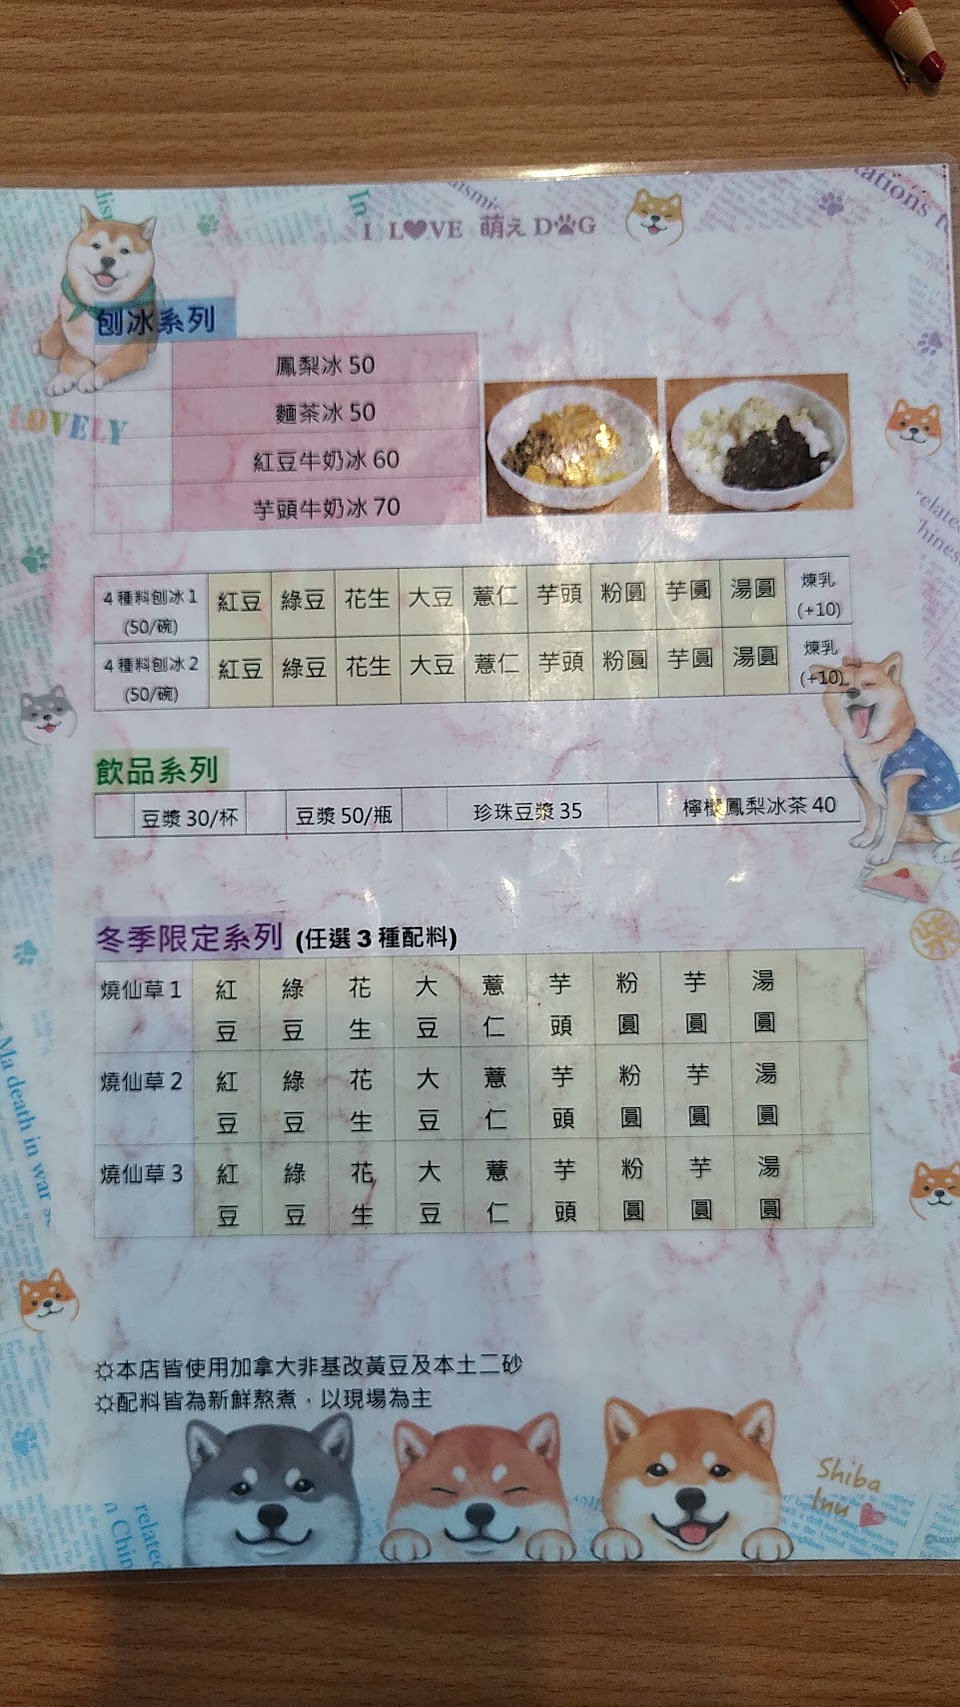 I LOVE 萌え DOG
刨冰系列
鳳梨冰 50
麵茶冰 50
紅豆牛奶冰 60
芋頭牛奶冰 70
LOVELY
4 種料刨冰 1 (50/碗) 紅豆 綠豆 花生 大豆 薏仁 芋頭 粉圓 芋圓 湯圓 煉乳 (+10)
4 種料刨冰 2 (50/碗) 紅豆 綠豆 花生 大豆 薏仁 芋頭 粉圓 芋圓 湯圓 煉乳 (+10)
飲品系列
豆漿 30/杯 豆漿 50/瓶 珍珠豆漿 35 檸檬鳳梨冰茶 40
冬季限定系列 (任選 3 種配料)
燒仙草 1 紅豆 綠豆 花生 大豆 薏仁 芋頭 粉圓 芋圓 湯圓
燒仙草 2 紅豆 綠豆 花生 大豆 薏仁 芋頭 粉圓 芋圓 湯圓
燒仙草 3 紅豆 綠豆 花生 大豆 薏仁 芋頭 粉圓 芋圓 湯圓
Ma death in war
柴
☼本店皆使用加拿大非基改黃豆及本土二砂
☼配料皆為新鮮熬煮，以現場為主
Shiba
Inu
related
n Chin